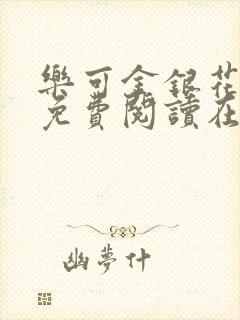 樂可金銀花
免費閱讀在
幽夢什